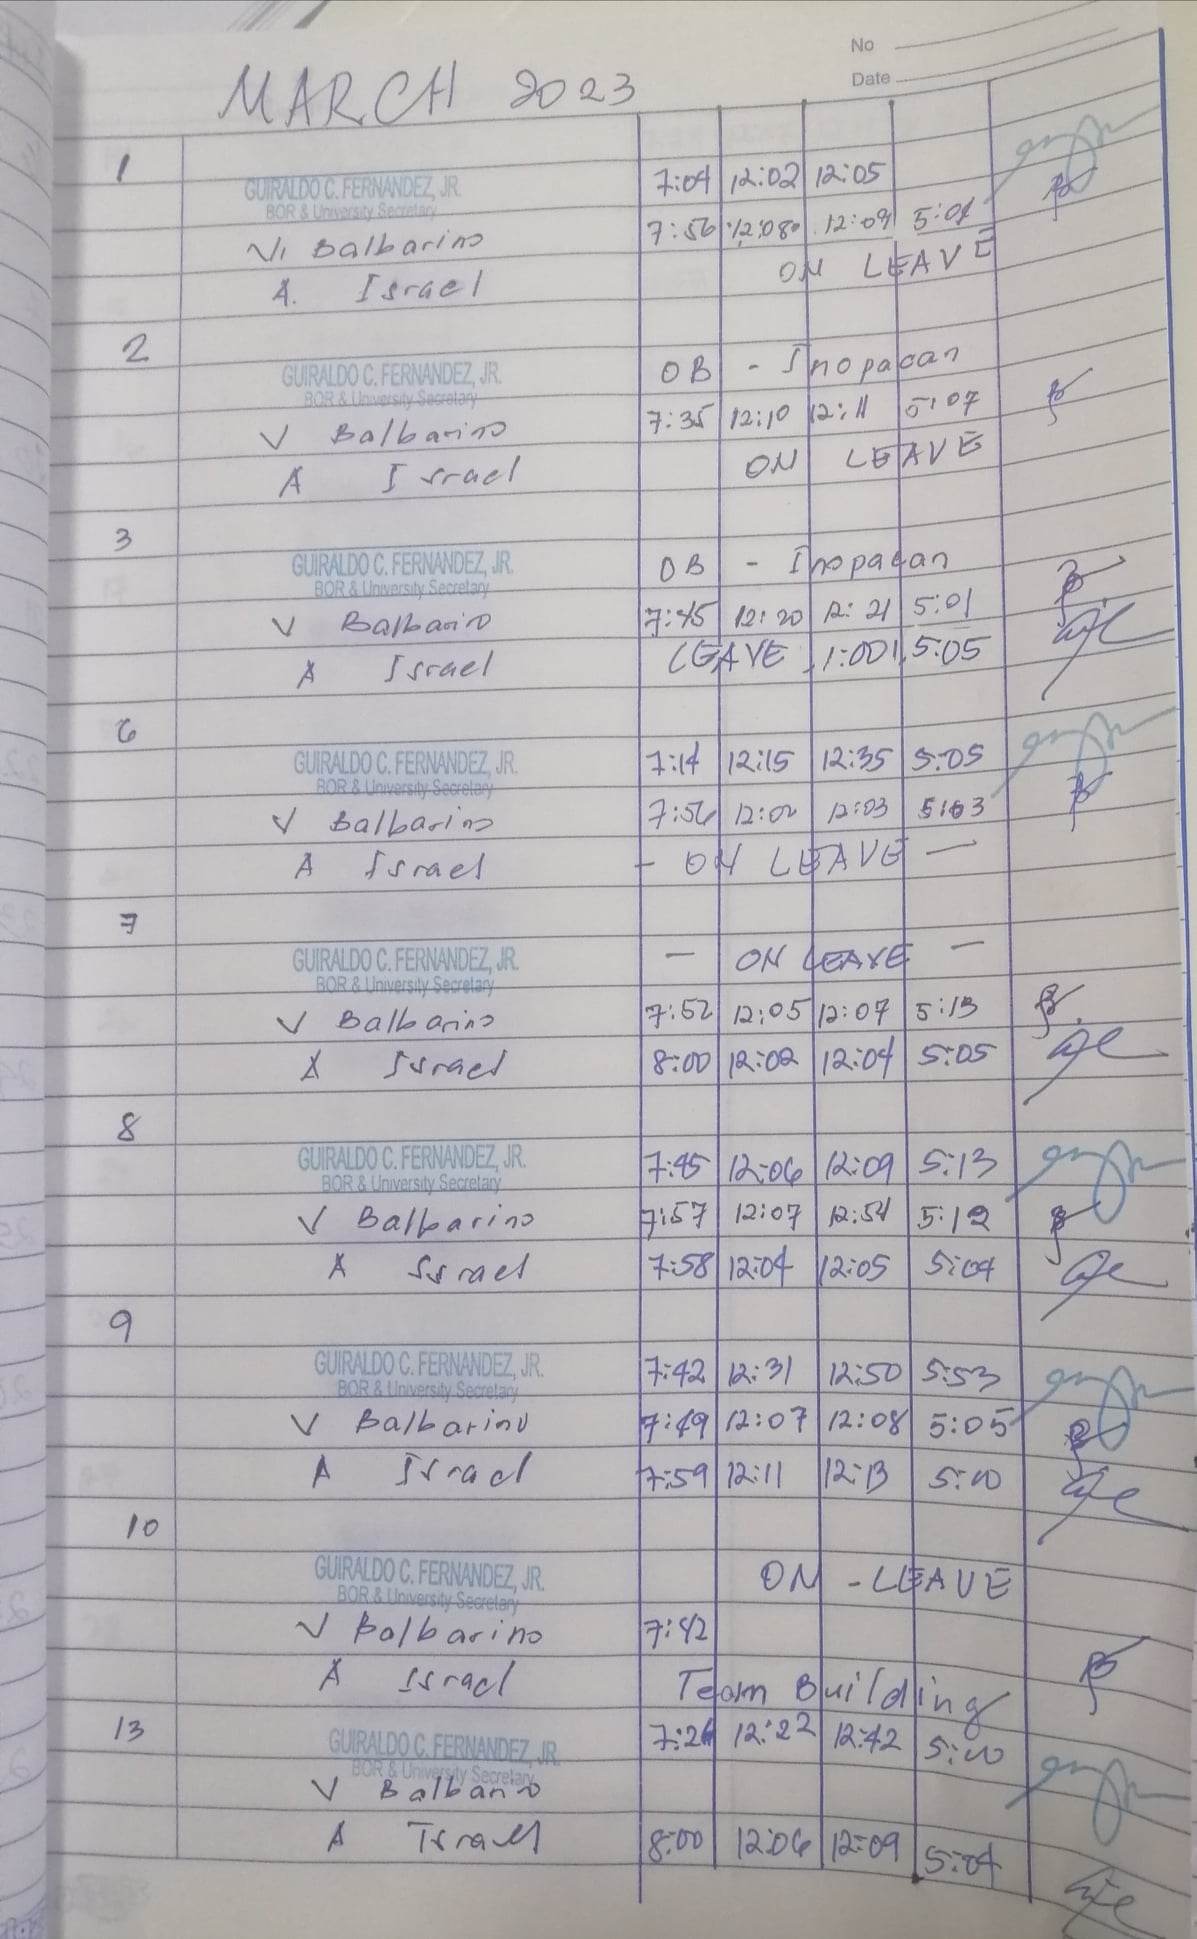 No
Date
MARCH 2023
1
GUIRALDO C. FERNANDEZ, JR. 7:04 12:02 12:05
BOR & University Secretary
V. Balbarino 7:56 12:08 12:09 5:01
A. Israel ON LEAVE
2
GUIRALDO C. FERNANDEZ, JR. OB - Inopacan
BOR & University Secretary
V Balbarino 7:35 12:10 12:11 5:07
A Israel ON LEAVE
3
GUIRALDO C. FERNANDEZ, JR. OB - Inopacan
BOR & University Secretary
V Balbarino 7:45 12:20 12:21 5:01
A Israel LEAVE 1:00 5:05
6
GUIRALDO C. FERNANDEZ, JR. 7:14 12:15 12:35 5:05
BOR & University Secretary
V Balbarino 7:56 12:02 12:03 5:03
A Israel - ON LEAVE -
7
GUIRALDO C. FERNANDEZ, JR. - ON LEAVE -
BOR & University Secretary
V Balbarino 7:52 12:05 12:07 5:13
A Israel 8:00 12:02 12:04 5:05
8
GUIRALDO C. FERNANDEZ, JR. 7:45 12:06 12:09 5:13
BOR & University Secretary
V Balbarino 7:57 12:07 12:54 5:12
A Israel 7:58 12:04 12:05 5:04
9
GUIRALDO C. FERNANDEZ, JR. 7:42 12:31 12:50 5:53
BOR & University Secretary
V Balbarino 7:49 12:07 12:08 5:05
A Israel 7:59 12:11 12:13 5:10
10
GUIRALDO C. FERNANDEZ, JR. ON - LEAVE
BOR & University Secretary
V Balbarino 7:42
A Israel Team Building
13
GUIRALDO C. FERNANDEZ, JR. 7:26 12:22 12:42 5:10
BOR & University Secretary
V Balbarino
A Israel 8:00 12:06 12:09 5:04